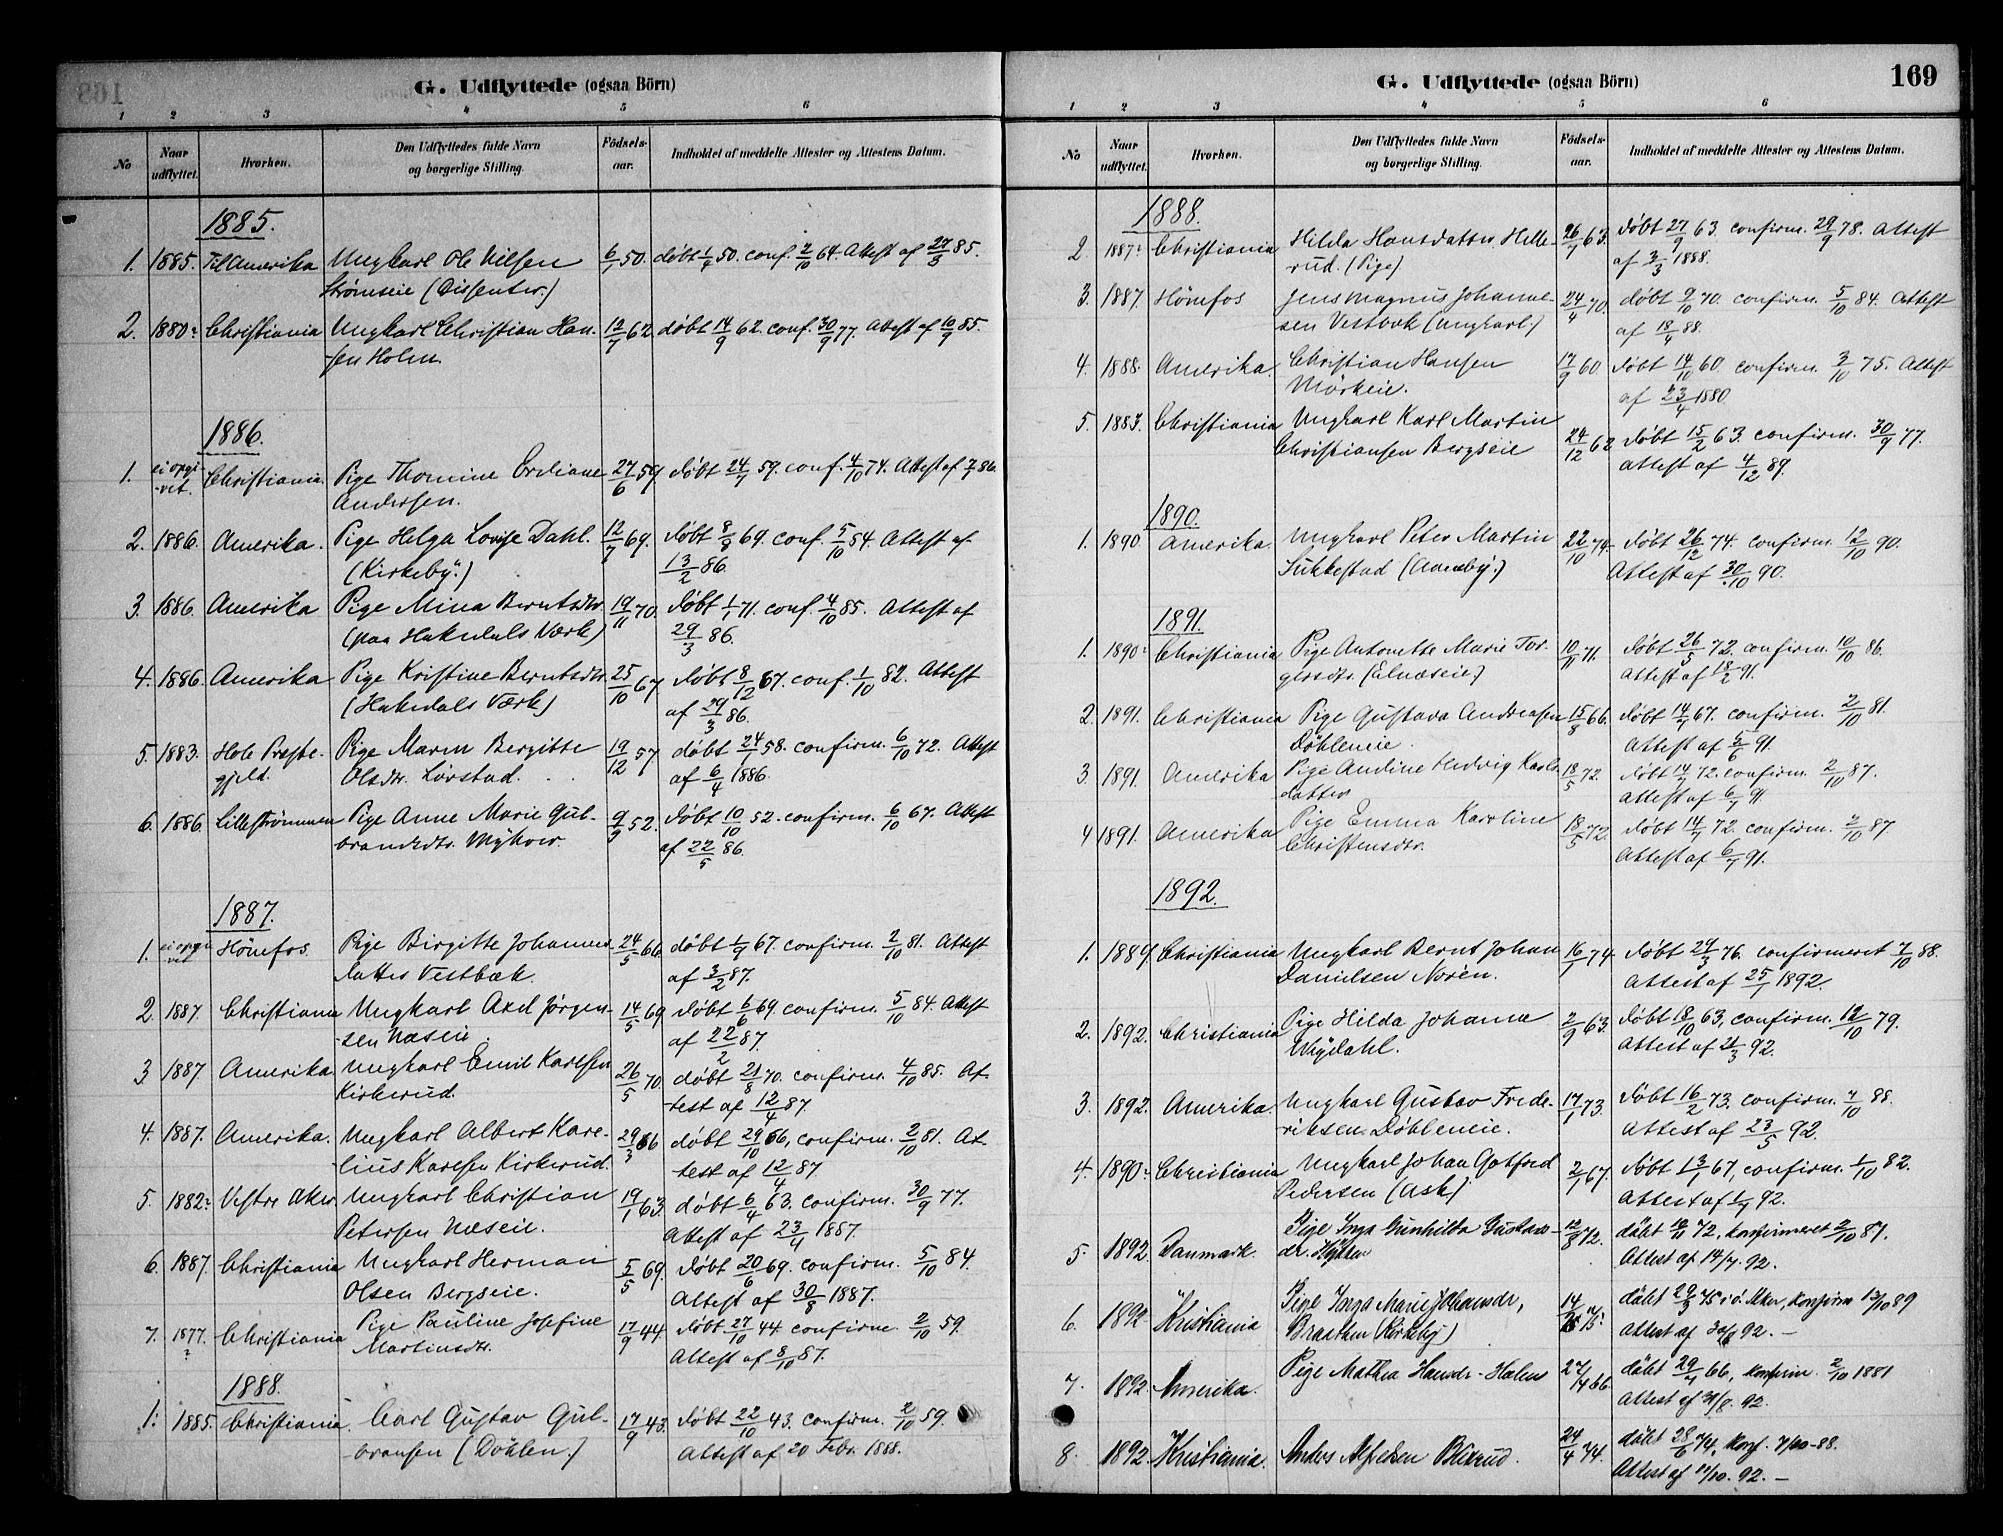 G. Udflyttede (ogsaa Börn)
1 2 3 4 5 6
No
Naar udflyttet.
Hvorhen.
Den Udflyttedes fulde Navn og borgerlige Stilling.
Födselsaar.
Indholdet af meddelte Attester og Attestens Datum.
1885.
1. 1885. Til Amerika Ungkarl Ole Nilsen 6/1 50. döbt 1/4 50. conf. 2/10 64. Attest af 27/3 85.
Strömseie (Dissenter.)
2. 1880? Christiania Ungkarl Christian Han- 12/7 62 döbt 14/9 62. conf. 30/9 77. Attest af 10/9 85.
sen Holm.
1886.
1. ei opgi- Christiania. Pige Thomine Erdiane 27/6 59 döbt 24/7 59. conf. 4/10 74. Attest af 7/2 86.
vet. Andersen.
2. 1886. Amerika. Pige Helga Lovise Dahl. 12/7 69. döbt 8/8 69. conf. 5/10 54. Attest af
(Kirkeby.) 13/2 86.
3. 1886. Amerika Pige Mina Berntsdtr. 19/11 70. döbt 1/1 71. conf. 4/10 85. Attest af
(paa Hakedals Værk) 29/3 86.
4. 1886. Amerika Pige Kristine Berntsdtr. 25/10 67 döbt 8/12 67. conf. 1/10 82. Attest
(Hakedals Værk) af 29/3 86.
5. 1883. Hole Preste- Pige Maren Bergitte 19/12 57 döbt 24/1 58. confirm. 6/10 72. Attest
gjeld. Olsdtr. Lörstad. af 6/4 1886.
6. 1886. Lilleströmmen Pige Anne Marie Gul- 9/9 52. döbt 10/10 52. confirm. 6/10 67. Attest
brandsdtr. af 22/5 86.
1887.
1. ei opgi- Hönefos. Pige Birgitte Johannes- 24/5 66. döbt 1/9 67. confirm. 2/10 81. Attest
vet datter Vestbæk. af 3/2 87.
2. 1887. Christiania Ungkarl Axel Jörgen- 14/5 69 döbt 6/6 69. confirm. 5/10 84. Attest
sen Næseie. af 22/2 87.
3 1887. Amerika. Ungkarl Emil Karlsen 26/5 70. döbt 21/8 70. confirm. 4/10 85. At-
Kirkerud. test af 12/4 87
4. 1887. Amerika. Ungkarl Albert Kare- 29/3 66 döbt 29/10 66, confirm. 2/10 81. At-
lius Karlsen Kirkerud. test af 12/4 87
5. 1882? Vestre Aker. Ungkarl Christian 19/1 63. döbt 6/4 63. confirm. 30/9 77.
Petersen Næseie. Attest af 23/4 1887.
6. 1887. Christiania Ungkarl Herman 5/5 69. döbt 20/6 69. confirm. 5/10 84.
Olsen Bergseie. Attest af 30/8 1887.
7. 1877. Christiania Pige Pauline Josefine 17/9 44. döbt 27/10 44. confirm. 2/10 59.
? Martinsdtr. Attest af 8/10 87.
1888.
1. 1885. Christiania. Carl Gustav Gul- 17/9 43. döbt 22/10 43. confirm. 2/10 59.
bransen (Döhlen.) Attest af 20 Febr. 1888.
G. Udflyttede (ogsaa Börn)
169
1 2 3 4 5 6
No
Naar udflyttet.
Hvorhen.
Den Udflyttedes fulde Navn og borgerlige Stilling.
Födselsaar.
Indholdet af meddelte Attester og Attestens Datum.
1888.
2 1887? Christiania Hilda Hansdatter Helle- 26/7 63. döbt 27/9 63. confirm. 29/9 78. Attest
rud. (Pige). af 3/3 1888.
3. 1887. Hönefos Jens Magnus Johanne- 24/4 70. döbt 9/10 70. confirm. 5/10 84. Attest
sen Vestbæk (Ungkarl) af 18/4 88.
4. 1888. Amerika. Christian Hansen 17/9 60 döbt 14/10 60. confirm. 3/10 75. Attest
Mörkeie. af 23/4 1880.
5. 1883. Christiania Ungkarl Karl Martin
Christiansen Bergseie 24/12 62 döbt 15/2 63. confirm. 30/9 77.
Attest af 4/12 89.
1890.
1. 1890. Amerika. Ungkarl Peter Martin 22/10 74. döbt 26/12 74. confirm. 12/10 90.
Sukkestad (Aaneby.) Attest af 30/10 90.
1891.
1. 1890? Christiania Pige Antonette Marie Tor- 10/9 71. döbt 26/5 72. confirm. 10/10 86.
gersdtr. (Elnæseie) Attest af 18/2 91.
2. 1891. Christiania Pige Gustava Andreasen 15/8 66. döbt 14/7 67. confirm. 2/10 81.
Döhleneie. Attest af 5/6 91.
3. 1891. Amerika Pige Andine Hedvig Karls- 18/5 72. döbt 14/7 72. confirm. 2/10 87.
datter Attest af 6/7 91
4 1891. Amerika Pige Emma Karoline 18/5 72. döbt 14/7 72. confirm. 2/10 87
Christensdtr. Attest af 6/7 91.
1892.
1. 1889. Christiania Ungkarl Bernt Johan 16/1 74 döbt 29/3 76. confirmeret 7/10 88.
Danielsen Norén. Attest af 25/1 1892.
2. 1892. Christiania Pige Hilda Johanne 2/9 63. döbt 18/10 63, confirm. 12/10 79.
Nydahl. Attest af 21/3 92.
3. 1892. Amerika. Ungkarl Gustav Frede- 17/1 73. döbt 16/2 73. confirm. 7/10 88.
riksen Döhleneie. Attest af 23/5 92.
4. 1890? Christiania Ungkarl Johan Gotfred 2/1 67. döbt 13/1 67, confirm. 1/10 82.
Pedersen (Ask) Attest af 1/7 92.
5 1892. Danmark. Pige Inga Gunhilda Gustavs- 12/8 72. döbt 10/11 72, konfirmeret 2/10 87.
dr. Attest af 14/7. 92.
6. 1892 Kristiania Pige Inga Marie Johansdr, 14/2 75. döbt 29/3 75 i ö. Aker, konfirm 13/10 89
Braathen (Kirkeby) Attest af 30/8 92. —
7. 1892. Amerika. Pige Mathea Hansdr. Holen 27/4 66. döbt 29/7 66, konfirm. 2/10 1881
Attest af 31/8. 92.
8. 1892. Kristiania. Anders 24/4 74. döbt 28/6 74, konf. 7/10-88.
Attest af 11/10. 92. —